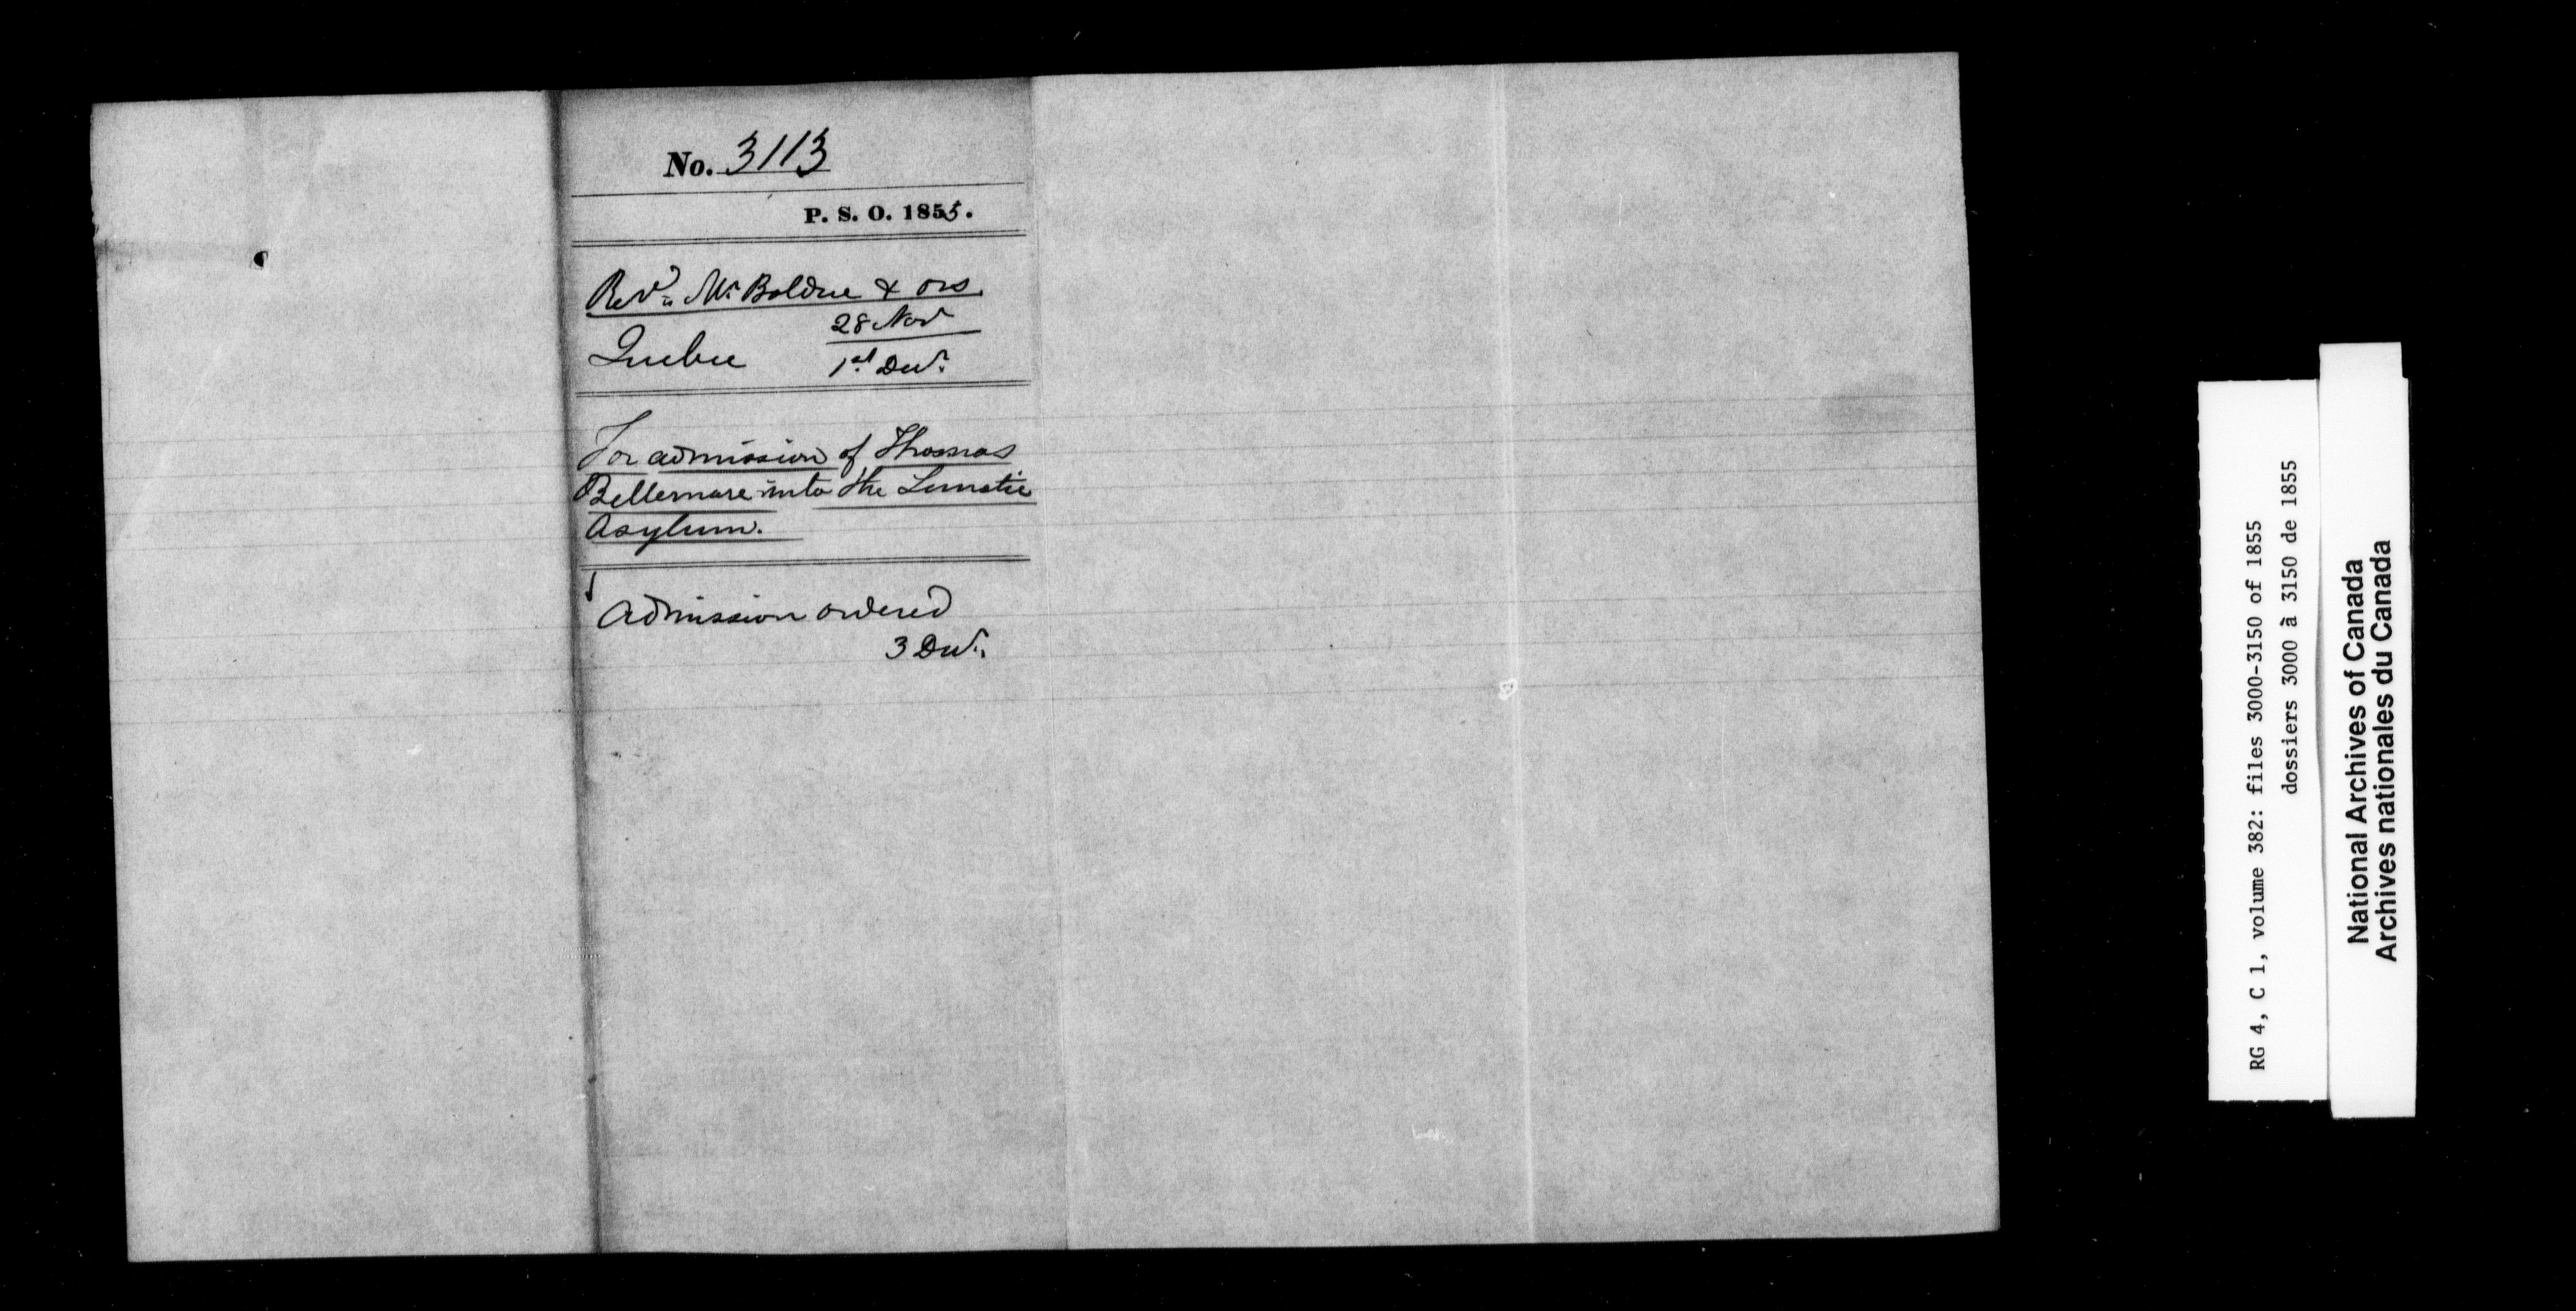 No. 3113
P. S. O. 1855.
Revd. Mr Bolduc & ors.
28 Nov
Quebec 1st Decr.
For admission of Thomas
Bellemare into the Lunatic
Asylum.
Admission ordered
3 Decr.
RG 4, C 1, volume 382: files 3000-3150 of 1855
dossiers 3000 à 3150 de 1855
National Archives of Canada
Archives nationales du Canada